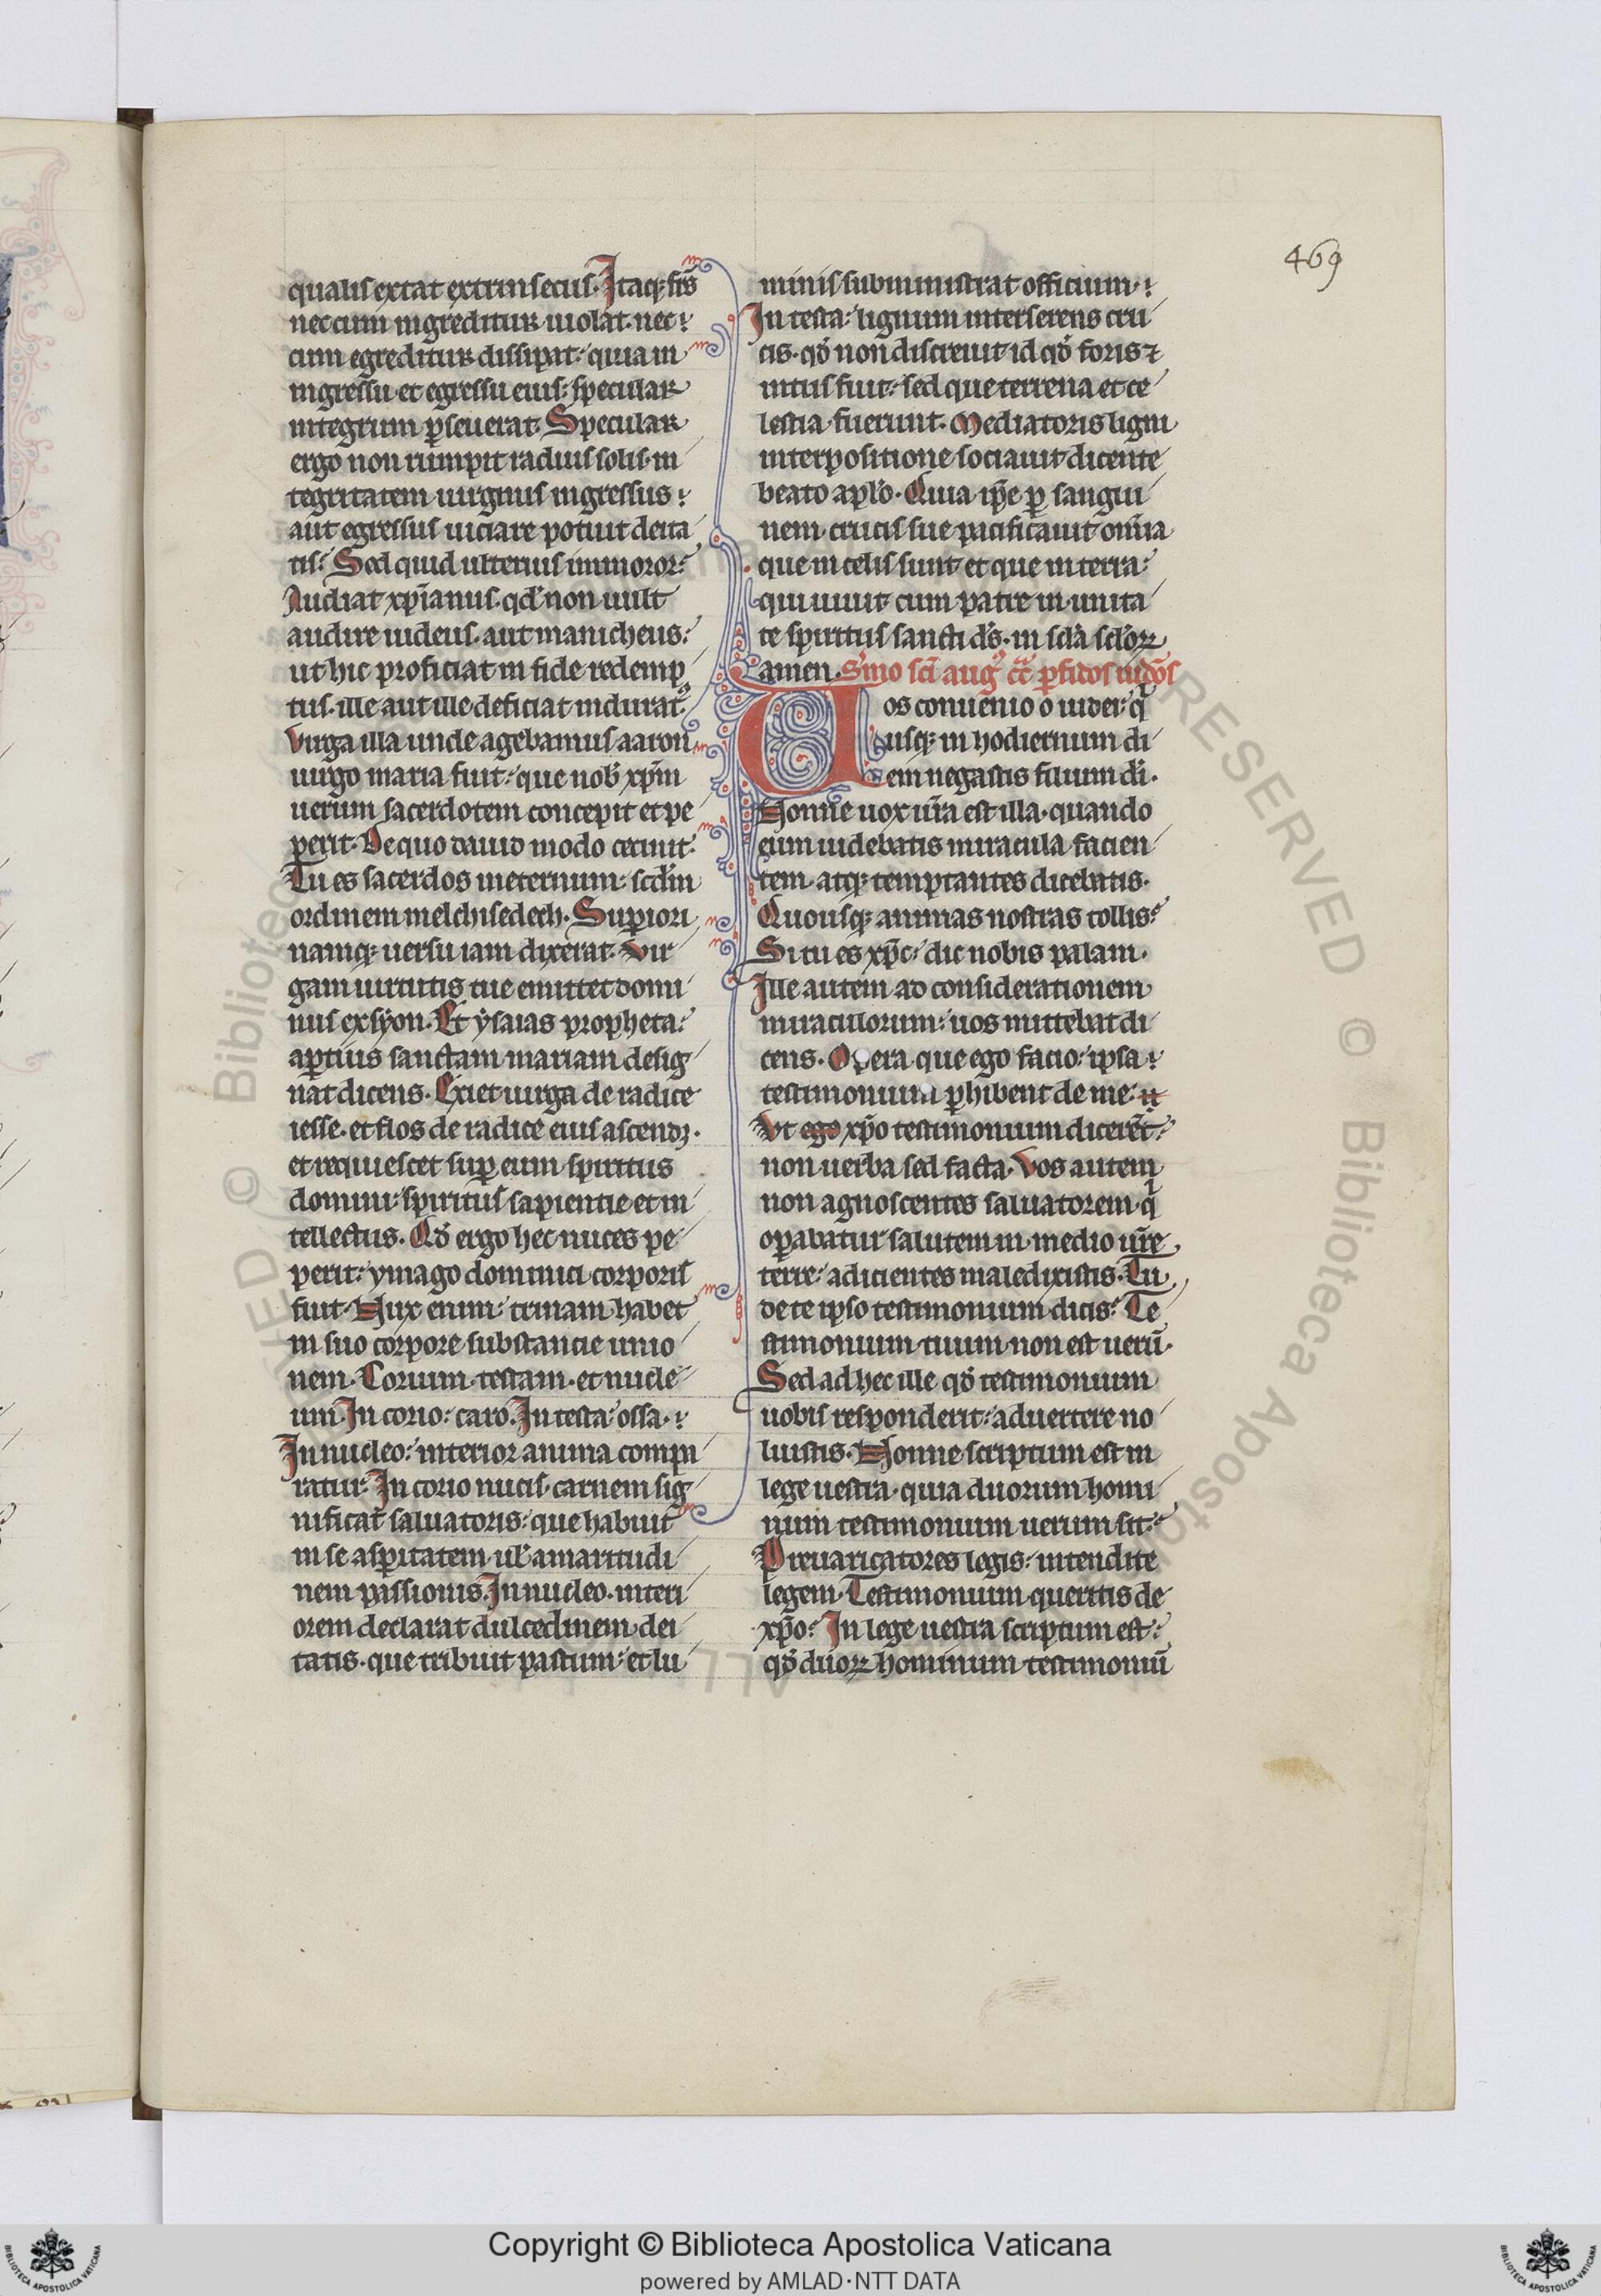 469
qualis extat extrinsecus. Itaq; fr̄s
nec cum ingreditur uiolat. nec
cum egreditur dissipat. quia in
ingressu et egressu eius. specular
integrum ꝑseuerat. Specular
ergo non rumpit radius solis. in
tegritatem uirginis ingressus
aut egressus uiciare potuit deita
tis. Sed quid ulterius immoror.
Audiat xp̄ianus. qd̓ non uult
audire iudeus. aut manicheus.
ut hic proficiat in fide redemp
tus. ille aut ille deficiat indurat᷒.
Virga illa unde agebamus aaron
uirgo maria fuit. que nob̓ xp̄m
uerum sacerdotem concepit et pe
perit. De quo dauid modo cecinit.
Tu es sacerdos in eternum. scd̓m
ordinem melchisedech. Superiori
namq; uersu iam dixerat. Vir
gam uirtutis tue emittet domi
nus ex syon. Et ysaias propheta.
aꝑtius sanctam mariam desig
nat dicens. Exiet uirga de radice
iesse. et flos de radice eius ascendꝫ.
et requiescet suꝑ eum spiritus
domini. spiritus sapientie et in
tellectus. Qd̓ ergo hec nuces pe
perit. ymago dominici corporis
fuit. Nux enim. trinam habet
in suo corpore substancie unio
nem. Corium. testam. et nucle
um. In corio. caro. In testa. ossa.
In nucleo. interior anima compa
ratur. In corio nucis. carnem sig
nificat saluatoris. que habuit
in se asꝑitatem. ul̓ amaritudi
nem passionis. In nucleo. interi
orem declarat dulcedinem. dei
tatis. que tribuit pastum. et lu
minis subministrat officium.
In testa. lignum interserens cru
cis. qd̓ non discreuit id qd̓ foris ⁊
intus fuit. sed que terrena et ce
lestia fuerunt. Mediatoris ligni
interpositione sociauit dicente
beato apl̓o. Quia ip̄e ꝑ sangui
nem crucis sue pacificauit om̄ia
que in celis sunt et que in terra.
qui uiuit cum patre in unita
te spiritus sancti d̓s. in scl̓a scl̓oꝝ
amen. S̓mo sc̄i aug᷒ 9t̄ ꝑfidos iud̓os
Vos conuenio o iudei. q̇
usq; in hodiernum di
em negastis filium di̓.
Nonne uox ur̄a est illa. quando
eum uidebatis miracula facien
tem. atq; temptantes dicebatis.
Quousq; animas nostras tollis.
Si tu es xp̄c. dic nobis palam.
Ille autem ad considerationem
miraculorum. uos mittebat di
cens. Opera que ego facio. ipsa
testimonium ꝑhibent de me.
Vt ego xp̄o testimonium dicerēt.
non uerba sed facta. Vos autem
non agnoscentes saluatorem. q̇
oꝑabatur salutem in medio ur̄e
terre. adicientes maledixistis. Tu
de te ipso testimonium dicis. Te
stimonium tuum non est uerū.
Sed ad hec ille qd̓ testimonium
uobis responderit. aduertere no
luistis. Nonne scriptum est in
lege uestra. quia duorum homi
num testimonium uerum sit.
Preuaricatores legis. intendite
legem. Testimonium queritis de
xp̄o. In lege uestra scriptum est.
qd̓ duoꝝ hominum testimoniū
Copyright © Biblioteca Apostolica Vaticana
powered by AMLAD·NTT DATA